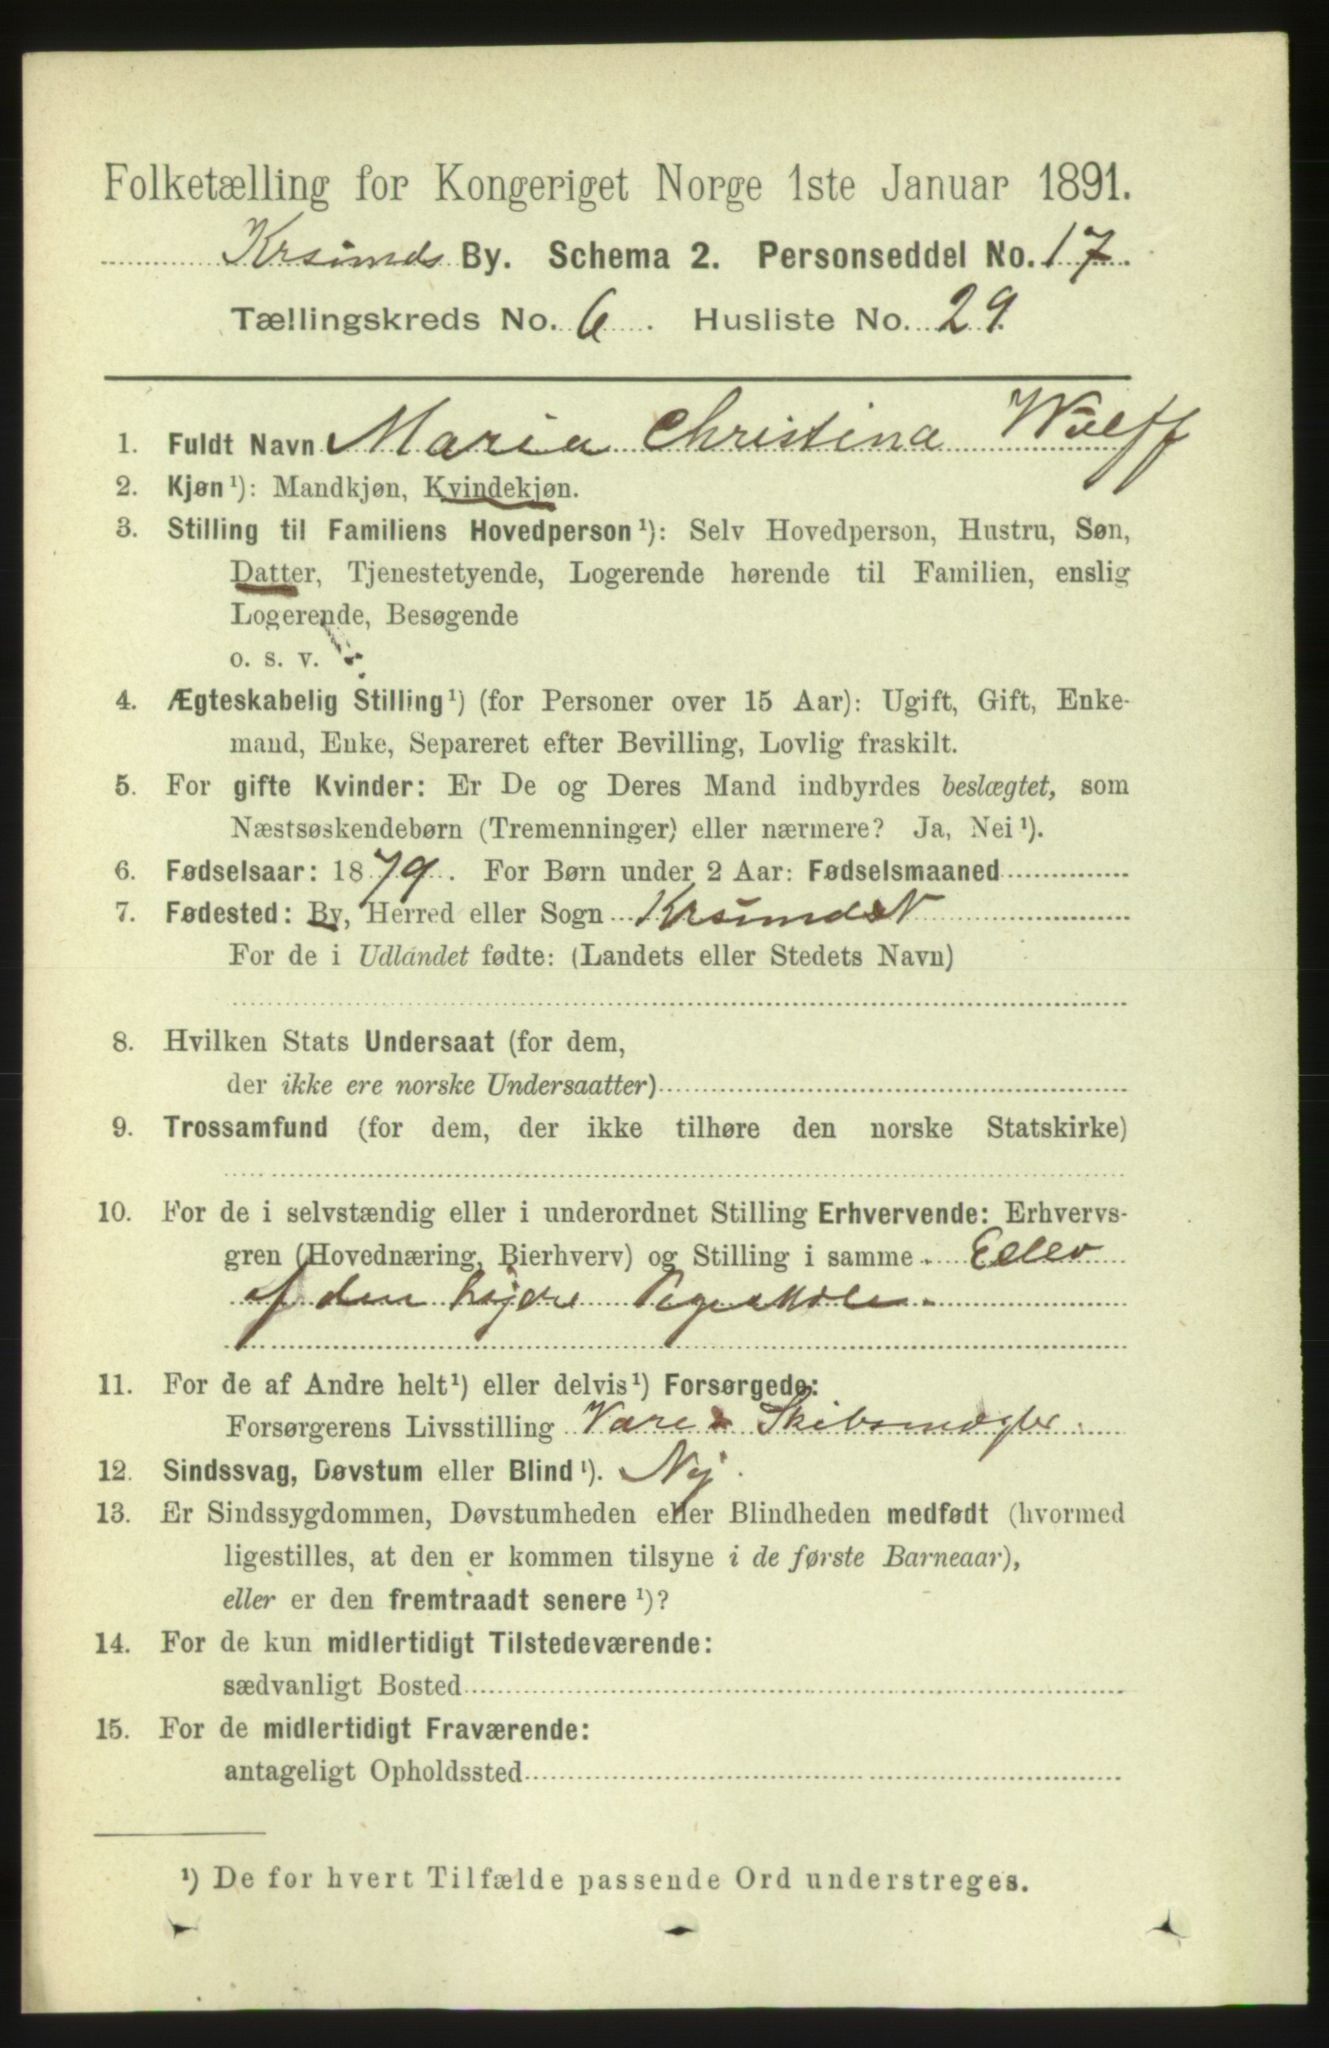 Folketælling for Kongeriget Norge 1ste Januar 1891.
Krsunds By. Schema 2. Personseddel No. 17.
Tællingskreds No. 6. Husliste No. 29
1. Fuldt Navn Maria Christina Wulff
2. Kjøn¹): Mandkjøn, Kvindekjøn.
3. Stilling til Familiens Hovedperson¹): Selv Hovedperson, Hustru, Søn,
Datter, Tjenestetyende, Logerende hørende til Familien, enslig
Logerende, Besøgende
o. s. v.
4. Ægteskabelig Stilling¹) (for Personer over 15 Aar): Ugift, Gift, Enke-
mand, Enke, Separeret efter Bevilling, Lovlig fraskilt.
5. For gifte Kvinder: Er De og Deres Mand indbyrdes beslægtet, som
Næstsøskendebørn (Tremenninger) eller nærmere? Ja, Nei¹).
6. Fødselsaar: 1879. For Børn under 2 Aar: Fødselsmaaned
7. Fødested: By, Herred eller Sogn Krsund N
For de i Udlandet fødte: (Landets eller Stedets Navn)
8. Hvilken Stats Undersaat (for dem,
der ikke ere norske Undersaatter)
9. Trossamfund (for dem, der ikke tilhøre den norske Statskirke)
10. For de i selvstændig eller i underordnet Stilling Erhvervende: Erhvervs-
gren (Hovednæring, Bierhverv) og Stilling i samme. Elev
af den højere Pigeskole.
11. For de af Andre helt¹) eller delvis¹) Forsørgede:
Forsørgerens Livsstilling Vare & Skibsmægler.
12. Sindssvag, Døvstum eller Blind¹). Nej.
13. Er Sindssygdommen, Døvstumheden eller Blindheden medfødt (hvormed
ligestilles, at den er kommen tilsyne i de første Barneaar),
eller er den fremtraadt senere¹)?
14. For de kun midlertidigt Tilstedeværende:
sædvanligt Bosted
15. For de midlertidigt Fraværende:
antageligt Opholdssted
¹) De for hvert Tilfælde passende Ord understreges.